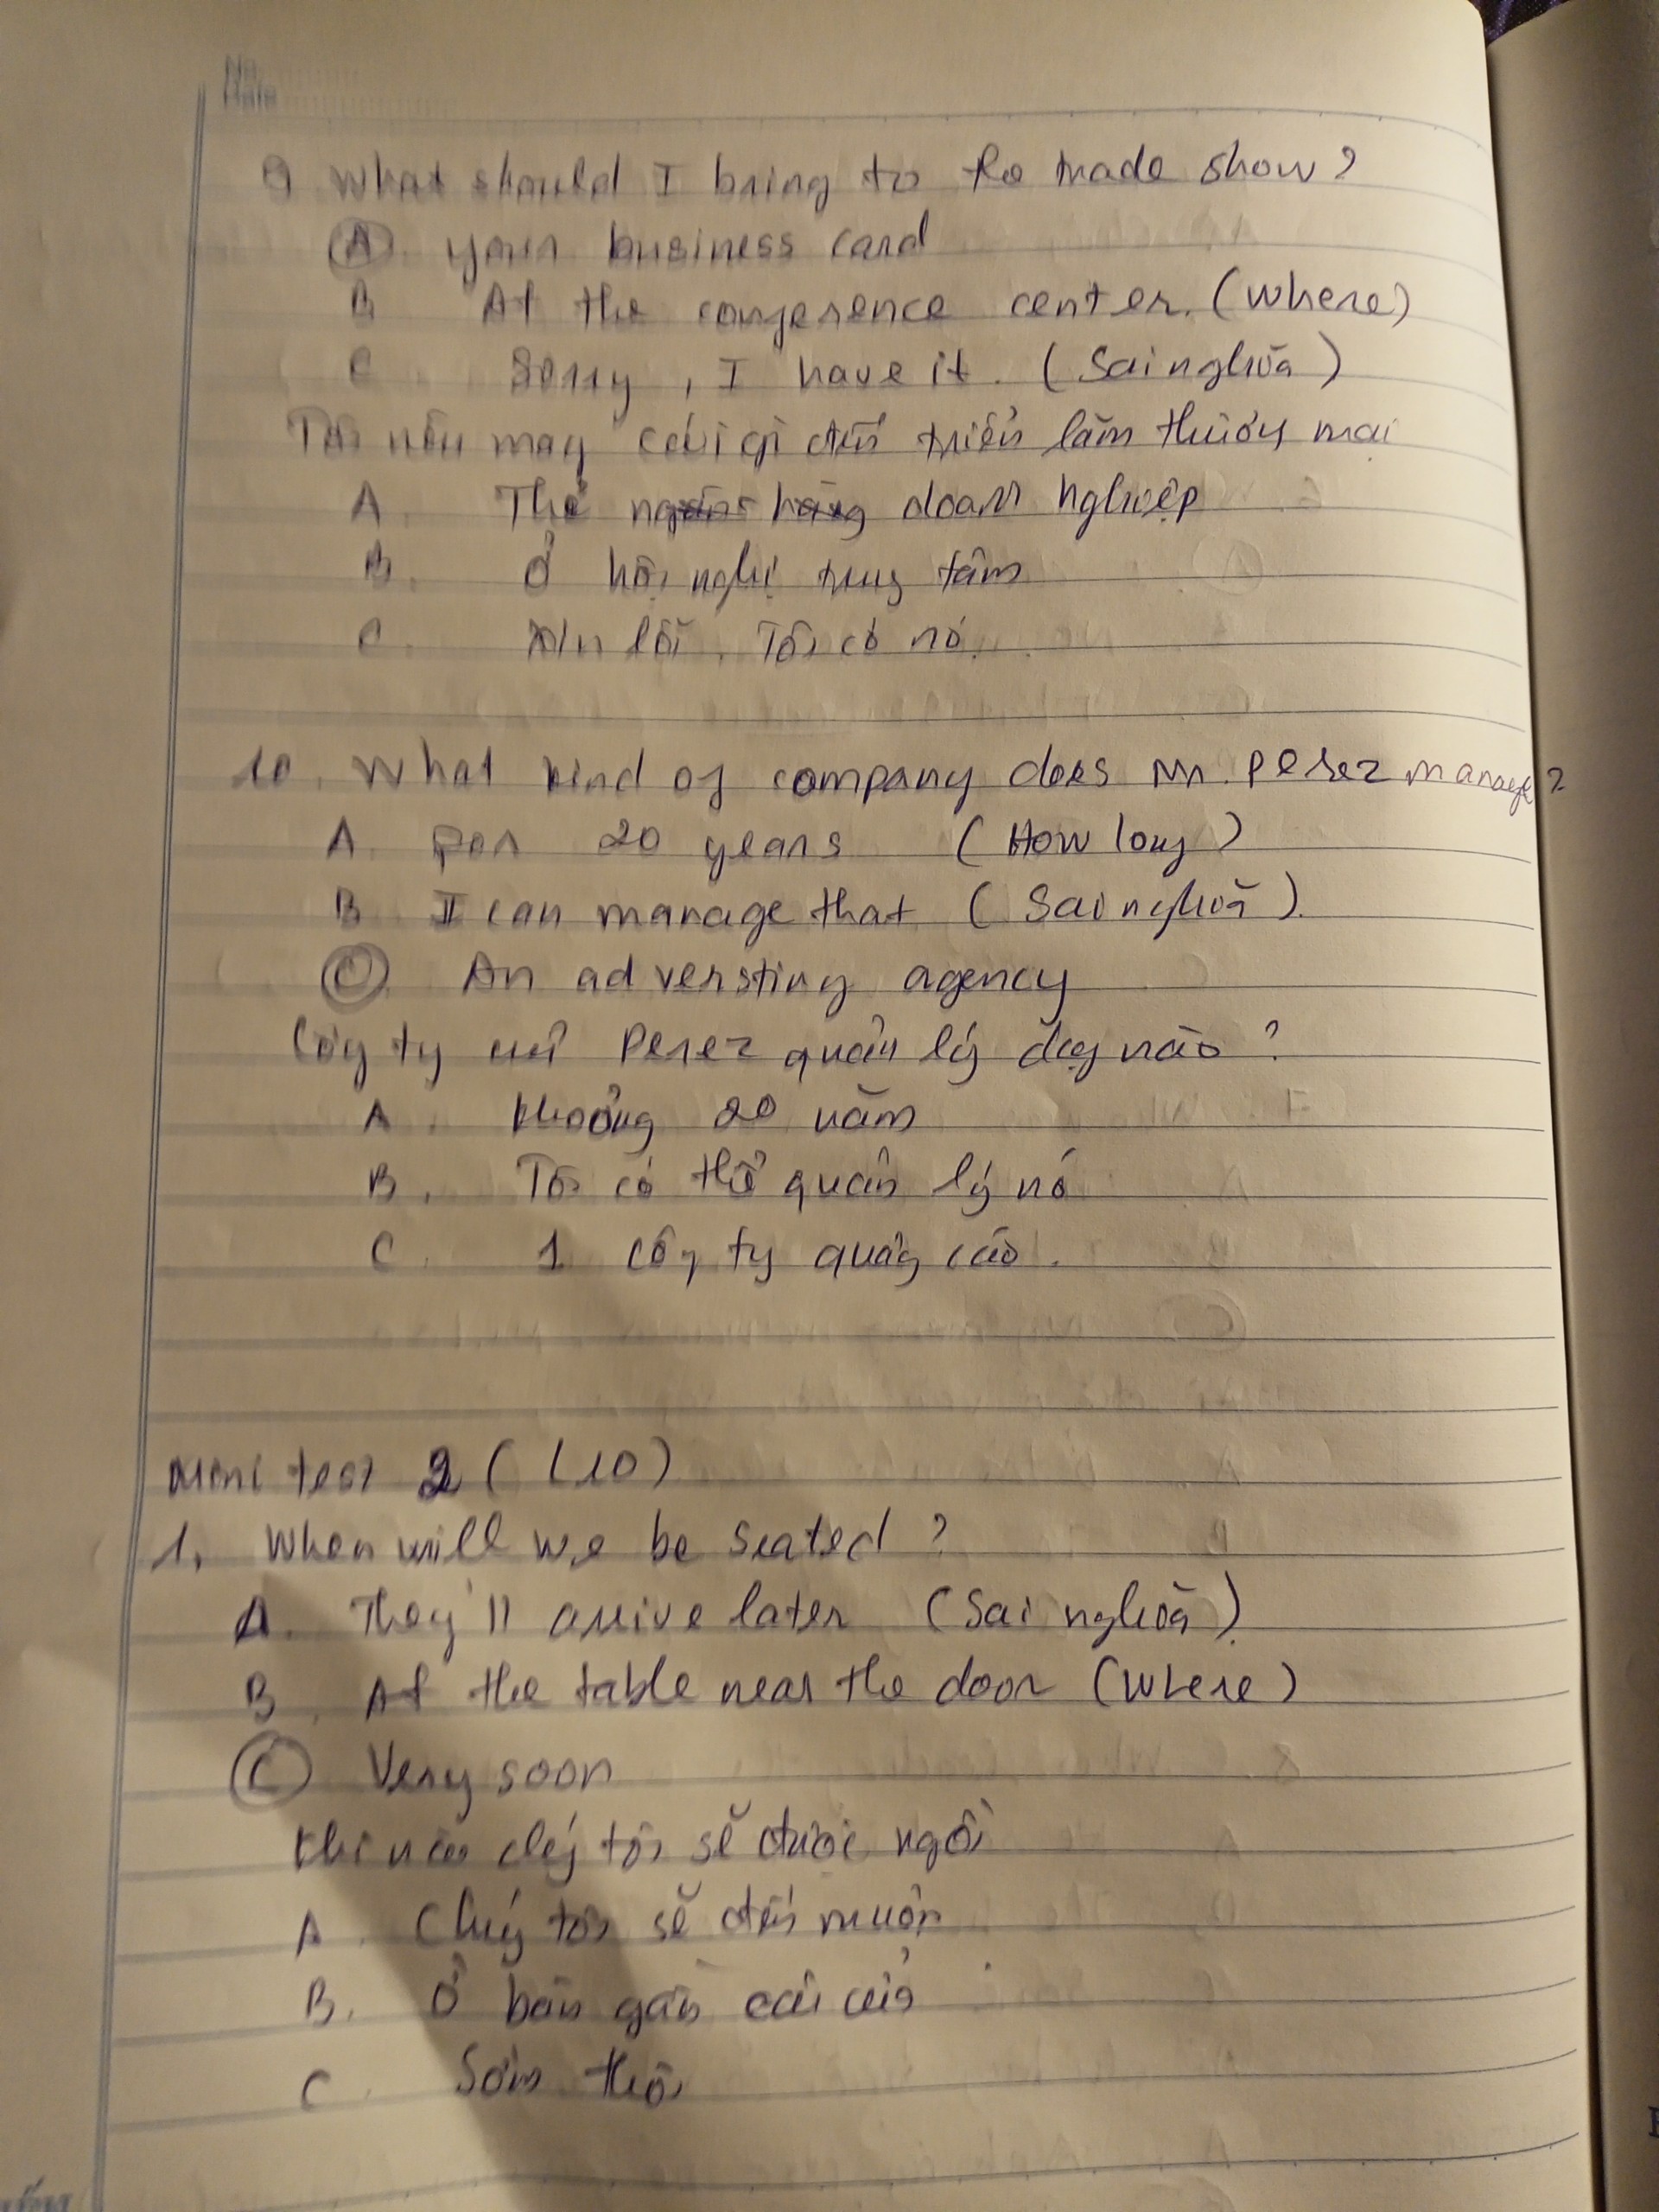 No.
Date
9 What should I bring to the trade show?
A. your business card
B At the conference center. (Where)
C. Sorry, I have it. (Sai nghĩa)
Tôi nên mang cái gì đến triển lãm thương mại
A. Thẻ doanh nghiệp
B. Ở hội nghị trung tâm
C. Xin lỗi, Tôi có nó.
10. What kind of company does Mr. Perez manage?
A. For 20 years (How long)
B I can manage that (Sai nghĩa).
C An adversting agency
Công ty mà Perez quản lý dạng nào?
A. Khoảng 20 năm
B. Tôi có thể quản lý nó
C. 1 công ty quảng cáo.
Mini test 2 (L10)
1. When will we be seated?
A. They'll arrive later (Sai nghĩa).
B. At the table near the door (Where)
C Very soon
Khi nào chúng tôi sẽ được ngồi
A. Chúng tôi sẽ đến muộn
B. Ở bàn gần cái cửa
C. Sớm thôi